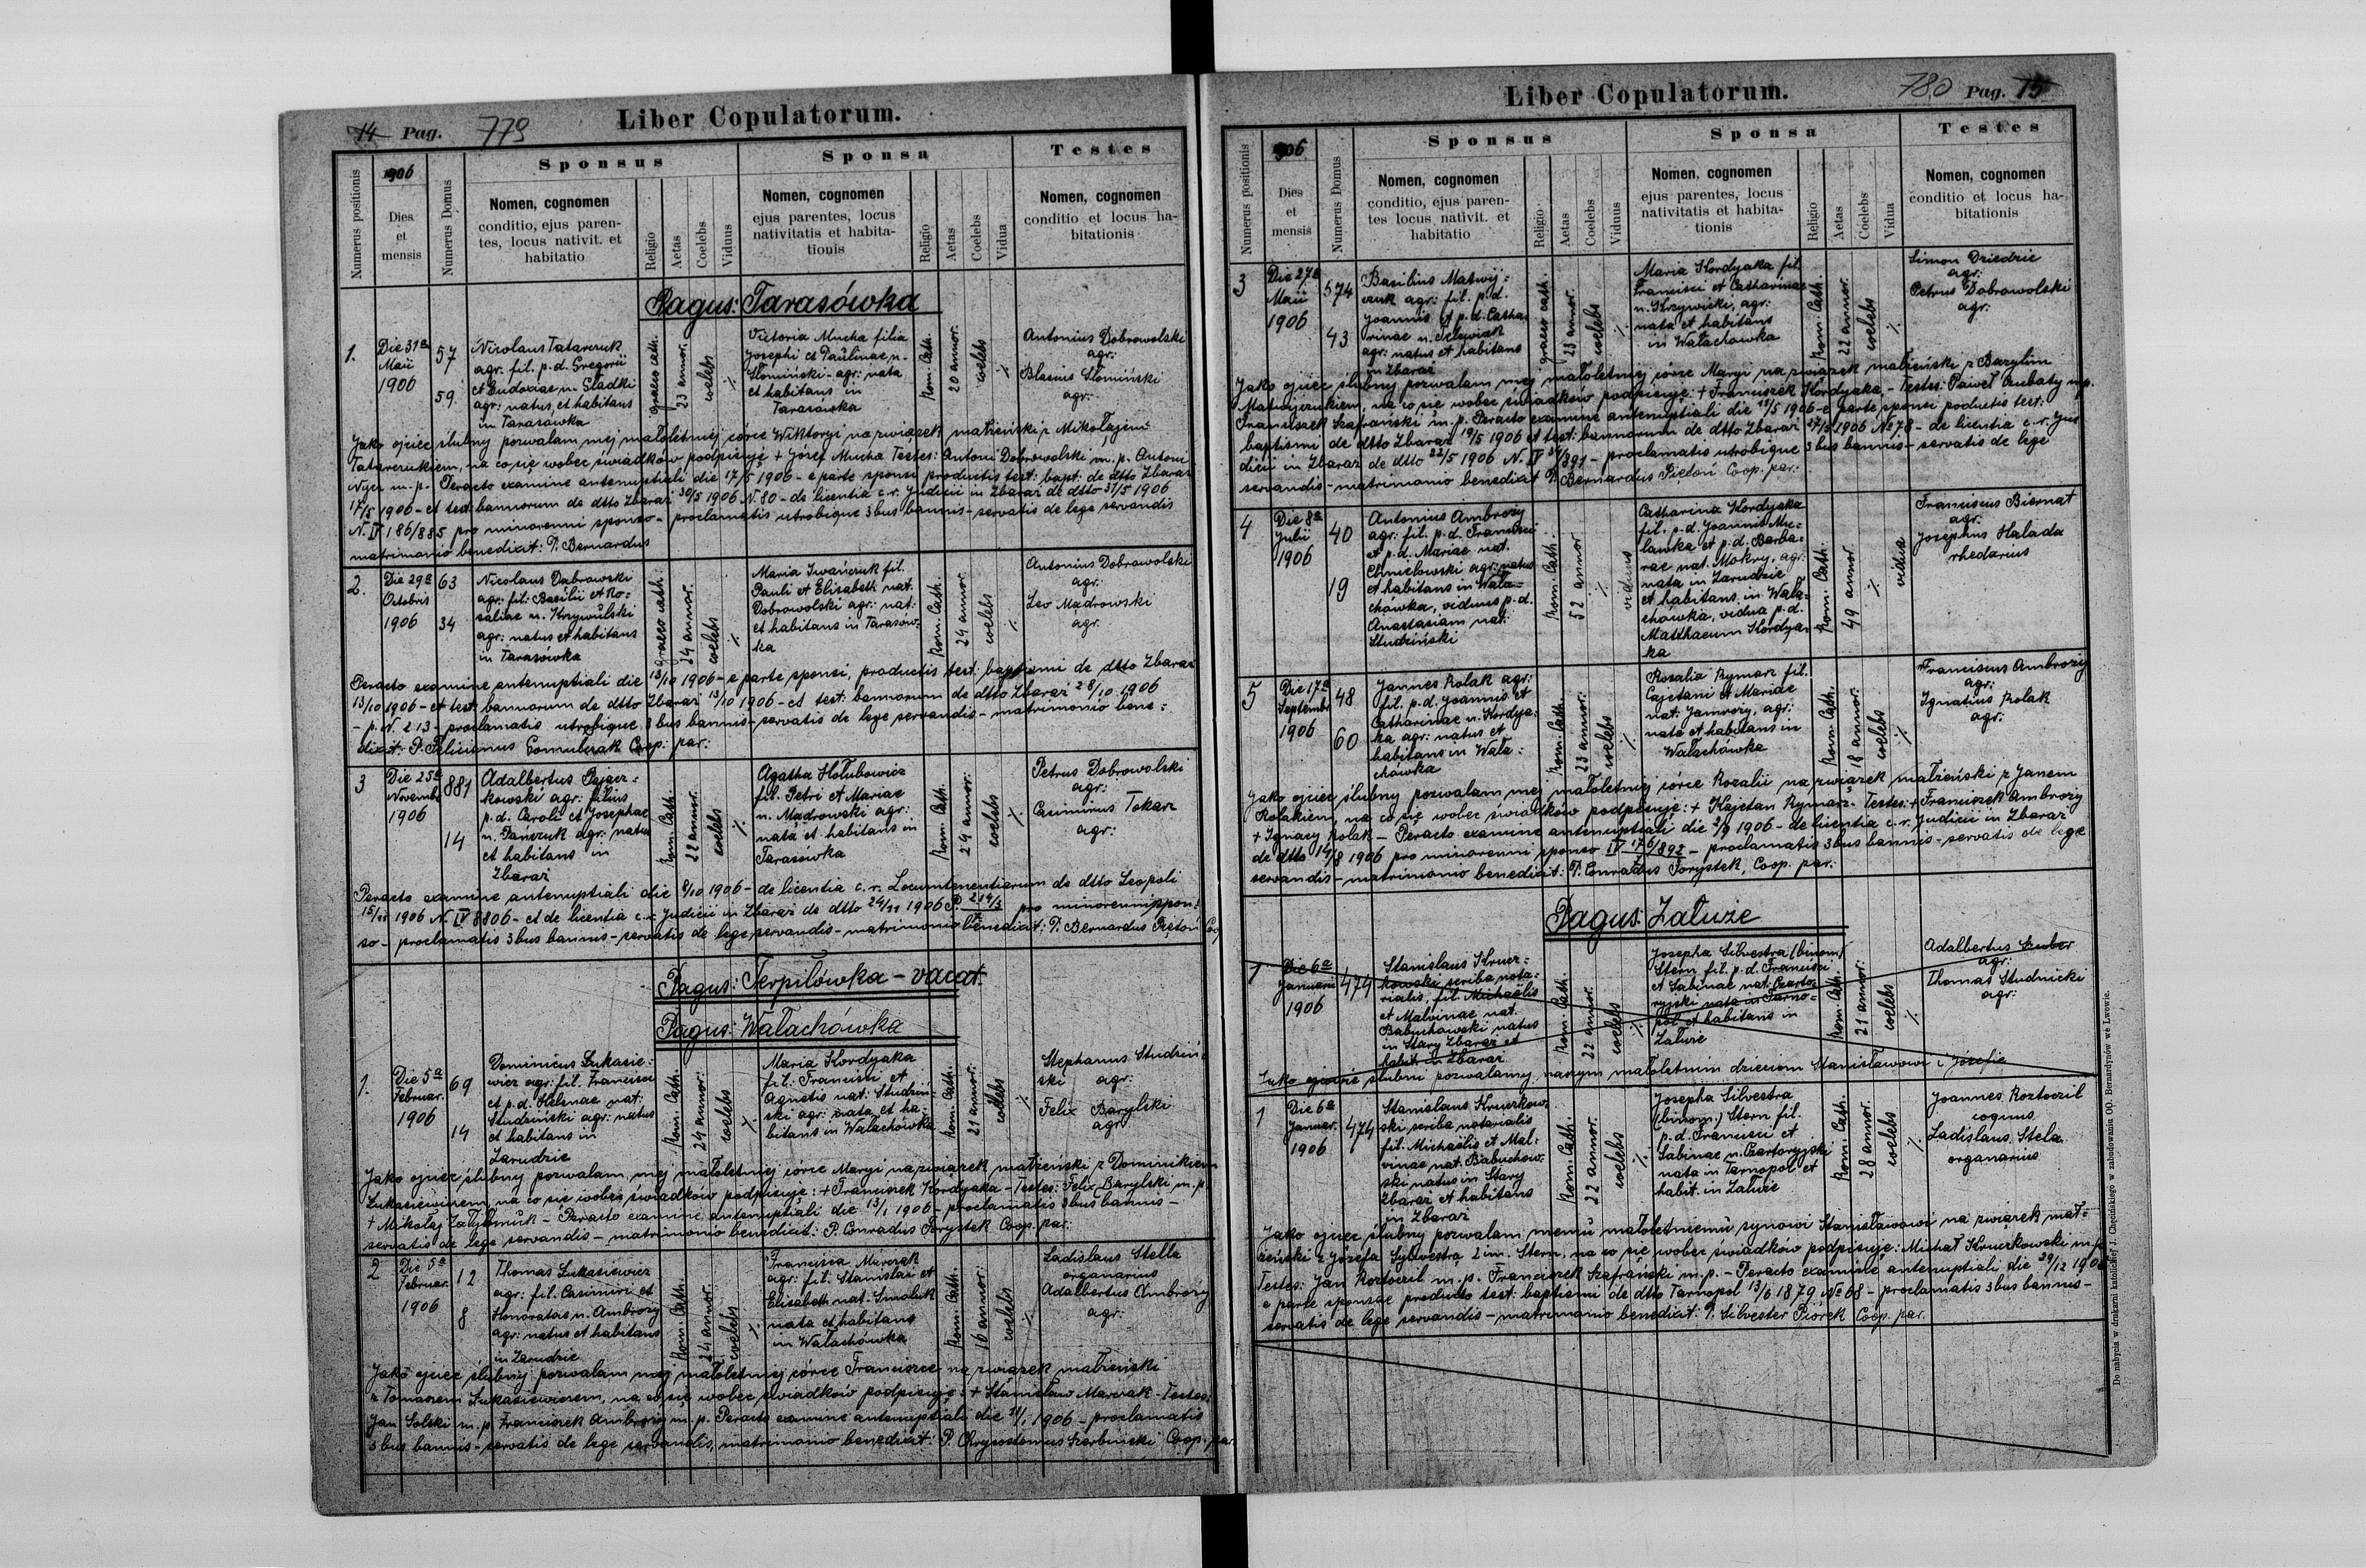 14 Pag. 779
Liber Copulatorum.
Numerus positionis
1906
Dies
et
mensis
Numerus Domus
Sponsus
Nomen, cognomen
conditio, ejus paren-
tes, locus nativit. et
habitatio
Religio
Aetas
Coelebs
Viduus
Sponsa
Nomen, cognomen
ejus parentes, locus
nativitatis et habita-
tionis
Religio
Aetas
Coelebs
Vidua
Testes
Nomen, cognomen
conditio et locus ha-
bitationis
Pagus: Tarasówka
1.
Die 31a
Maii
1906
57
59
Nicolaus Tatarczuk
agr. fil. p. d. Gregorii
et Eudoxiae n. Gładki
agr: natus, et habitans
in Tarasówka
graeco cath.
23 annor.
coelebs
Victoria Mucha filia
Josephi et Paulinae n.
Słomiński - agr: nata
et habitans in
Tarasówka
Rom. Cath.
20 annor.
coelebs
Antonius Dobrowolski
agr:
Blasius Słomiński
agr.
Jako ojciec ślubny pozwalam mej małoletniej córce Wiktoryi na związek małżeński z Mikołajem
Tatarczukiem, na co się wobec świadków podpisuję + Józef Mucha Testes: Antoni Dobrowolski m. p. Antoni
m. p. - Peracto examine antenuptiali die 17/5 1906 - e parte sponsi productis test: bapt: de dtto Zbaraż
17/5 1906 - et test. bannorum de dtto Zbaraż 30/5 1906 N. 80 - de licentia c. r. Judicii in Zbaraż de dtto 31/5 1906
N. IV 186/885 pro minorenni sponso - proclamatis utrobique 3bus bannis - servatis de lege servandis
matrimonio benedixit: P. Bernardus
2.
Die 29a
Octobris
1906
63
34
Nicolaus Dabrowski
agr: fil: Basilii et Ro=
saliae n. Krzywulski
agr: natus et habitans
in Tarasówka
graeco cath.
24 annor.
coelebs
Maria Iwańczuk fil.
Pauli et Elisabeth nat.
Dobrowolski agr: nat:
et habitans in Tarasów-
ka
Rom. Cath.
24 annor.
coelebs
Antonius Dobrowolski
agr:
Leo Madrowski
agr.
Peracto examine antenuptiali die 13/10 1906 - e parte sponsi, productis test: baptismi de dtto Zbaraż
13/10 1906 - et test: bannorum de dtto Zbaraż 28/10 1906
- p. N. 213 - proclamatis utrobique 3 bus bannis - servatis de lege servandis - matrimonio bene=
dixit: P. Felicianus Coop: par:
3
Die 25a
Novembr.
1906
881
14
Adalbertus Pajacz=
kowski agr: filius
p. d. Caroli et Josephae
n. Pańczuk agr: natus
et habitans in
Zbaraż
Rom. Cath.
22 annor.
coelebs
Agatha Hołubowicz
fil. Petri et Mariae
n. Madrowski agr:
nata et habitans in
Tarasówka
Rom. Cath.
24 annor.
coelebs
Petrus Dobrowolski
agr:
Casimirus Tokarz
agr:
Peracto examine antenuptiali die 9/10 1906 - de licentia c. r. Locumtenentiarum de dtto Leopoli
15/11 1906 N. IV 8806 - et de licentia c. r. Judicii in Zbaraż de dtto 24/11 1906 pro minorenni spon=
so - proclamatis 3bus bannis - servatis de lege servandis - matrimonio benedixit: P. Bernardus Pięton Coop
Pagus: Terpilówka - vacat.
Pagus: Wałachówka
1.
Die 5a
Februar.
1906
69
14
Dominicus Łukasie=
wicz agr: fil. Francisci
et p. d. Helenae nat:
Studziński agr: natus
et habitans in
Zarudzie
Rom. Cath.
24 annor.
coelebs
Maria Kordyaka
fil: Francisci et
Agnetis nat: Studziń-
ski agr: nata et ha-
bitans in Wałachówka
Rom. Cath.
21 annor.
coelebs
Stephanus Studziń-
ski agr:
Felix Barylski
agr
Jako ojciec ślubny pozwalam mej małoletniej córce Maryi na związek małżeński z Dominikiem
Łukasiewiczem, na co się wobec świadków podpisuję: + Franciszek Kordyaka - Testes: Felix Barylski m. p.
+ Mikołaj - Peracto examine antenuptiali die 13/1 1906 - proclamatis 3bus bannis -
servatis de lege servandis - matrimonio benedixit: P. Conradus Forystek Coop. par:
2
Die 5a
Februar.
1906
12
8
Thomas Łukasiewicz
agr: fil. Casimiri et
Honoratae n. Ambrozy
agr: natus et habitans
in Zarudzie
Rom. Cath.
24 annor.
coelebs
Francisca Marczak
agr: fil. Stanislai et
Elisabeth nat. Smoluk
nata et habitans
in Wałachówka
Rom. Cath.
16 annor:
coelebs
Ladislaus Stella
organarius
Adalbertus Ambrozy
agr:
Jako ojciec ślubny pozwalam mej małoletniej córce Franciszce na związek małżeński
z Tomaszem Łukasiewiczem, na co się wobec świadków podpisuję: + Stanisław Marczak - Testes:
Jan Solski m. p. Franciszek Ambrozy m. p. Peracto examine antenuptiali die 1906 - proclamatis
3 bus bannis - servatis de lege servandis, matrimonio benedixit: P. Chrysostomus Coop. par
Liber Copulatorum.
780 Pag. 15
Numerus positionis
1906
Dies
et
mensis
Numerus Domus
Sponsus
Nomen, cognomen
conditio, ejus paren-
tes locus nativit. et
habitatio
Religio
Aetas
Coelebs
Viduus
Sponsa
Nomen, cognomen
ejus parentes, locus
nativitatis et habita-
tionis
Religio
Aetas
Coelebs
Vidua
Testes
Nomen, cognomen
conditio et locus ha-
bitationis
3
Die 27a
Maii
1906
574
43
Basilius Matwij=
czuk agr: fil. p. d.
Joannis et p. d. Catha
rinae n.
agr: natus et habitans
in Zbaraż
graeco cath.
23 annor.
coelebs
Maria Kordyaka fil.
Francisci et Catharinae
n. Krzywicki, agr:
nata et habitans
in Wałachówka
Rom. Cath.
22 annor.
coelebs
Simon Dziedzic
agr:
Petrus Dobrowolski
agr.
Jako ojciec ślubny pozwalam mej małoletniej córce Maryi na związek małżeński z Bazylim
Matwijczukiem, na co się wobec świadków podpisuję: + Franciszek Kordyaka - Testes: Paweł m. p.
Franciszek Szafrański m. p. Peracto examine antenuptiali die 1906 - e parte sponsi productis test:
baptismi de dtto Zbaraż 19/5 1906 et test: bannorum de dtto Zbaraż 27/5 1906 No 78 - de licentia c. r. Jud
dicii in Zbaraż de dtto 22/5 1906 - proclamatis utrobique 3bus bannis - servatis de lege
servandis - matrimonio benedixit P. Bernardus Pięton Coop. par:
4
Die 8a
Julii
1906
40
19
Antonius Ambrozy
agr: fil. p. d. Francisci
et p. d. Mariae nat.
Chmielowski agr: natus
et habitans in Wała-
chówka, viduus p. d.
Anastasiam nat:
Studziński
Rom. Cath.
52 annor
viduus
Catharina Kordyaka
fil. p. d. Joannis Mu=
lawka et p. d. Barba=
rae nat. Mokry, agr:
nata in Zarudzie
et habitans in Wała=
chówka, vidua p. d.
Matthaeum Kordya-
ka
Rom: Cath.
49 annor.
vidua
Franciscus Biernat
agr:
Josephus Halada
rhedarius
5
Die 17a
Septembr.
1906
48
60
Joannes Rolak agr:
fil. p. d. Joannis et
Catharinae n. Kordya-
ka agr: natus et
habitans in Wała=
chówka
Rom. Cath.
23 annor:
coelebs
Rosalia Rymarz fil.
Cajetani et Mariae
nat: Jamrozy, agr:
nata et habitans in
Wałachówka
Rom. Cath.
18 annor.
coelebs
Franciscus Ambrozy
agr:
Ignatius Rolak
agr:
Jako ojciec ślubny pozwalam mej małoletniej córce Rozalii na związek małżeński z Janem
Rolakiem, na co się wobec świadków podpisuję: + Kajetan Rymarz - Testes: + Franciszek Ambrozy
+ Ignacy Rolak - Peracto examine antenuptiali die 2/9 1906 - de licentia c. r. Judicii in Zbaraż
de dtto 14/8 1906 pro minorenni sponso IV 176/892 - proclamatis 3bus bannis - servatis de lege
servandis - matrimonio benedixit: P. Conradus Forystek, Coop. par:
Pagus: Załuże
1
Die 6a
Januarii
1906
474
Stanislaus Krucz=
kowski scriba nota=
rialis, fil. Michaelis
et Malvinae nat.
Babuchowski natus
in Stary Zbaraż et
habit. in Zbaraż
Rom. Cath.
22 annor.
coelebs
Josepha Silvestra (binom)
Stern fil. p. d. Francisci
et Sabinae nat: Czarto-
ryjski nata in Tarno=
pol et habitans in
Załuże
Rom. Cath.
21 annor.
coelebs
Adalbertus Szuber
agr:
Thomas Studnicki
agr:
Jako ojcowie ślubni pozwalamy naszym małoletnim dzieciom Stanisławowi i Józefie
1
Die 6a
Januar.
1906
474
Stanislaus Kruczkow-
ski scriba notarialis
fil. Michaelis et Mal-
vinae nat. Babuchow-
ski natus in Stary
Zbaraż et habitans
in Zbaraż
Rom. Cath.
22 annor.
coelebs
Josepha Silvestra
(binom.) Stern fil.
p. d. Francisci et
Sabinae n. Czartoryjski
nata in Tarnopol et
habit. in Załuże
Rom. Cath.
28 annor.
coelebs
Joannes Roztoczil
coquus
Ladislaus Stela
organarius
Jako ojciec ślubny pozwalam memu małoletniemu synowi Stanisławowi na związek mał=
żeński z Józefą Sylwestrą 2 im. Stern, na co się wobec świadków podpisuję: Michał Kruczkowski m. p.
Testes: Jan Roztoczil m. p. Franciszek Szafrański m. p. - Peracto examine antenuptiali die 29/12
e parte sponsae producto test. baptismi de dtto Tarnopol 13/6 1879, No 68 - proclamatis 3bus bannis -
servatis de lege servandis - matrimonio benedixit: P. Silvester Piórek Coop. par.
Do nabycia w drukarni katolickiej J. Chęcińskiego w zabudowaniu OO. Bernardynów we Lwowie.